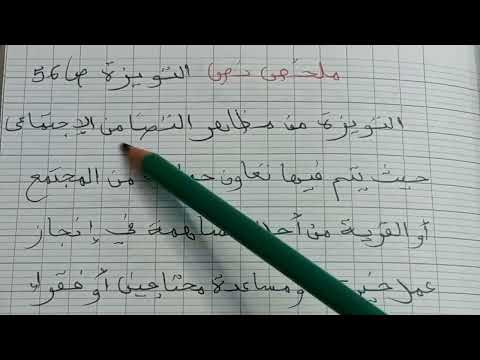 ملخص نص التويزة ص56
التويزة من مظاهر التضامن الإجتماعي
حيث يتم فيها تعاون من المجتمع
أو القرية من أجل في إنجاز
عمل خيري ومساعدة محتاجين أو فقراء